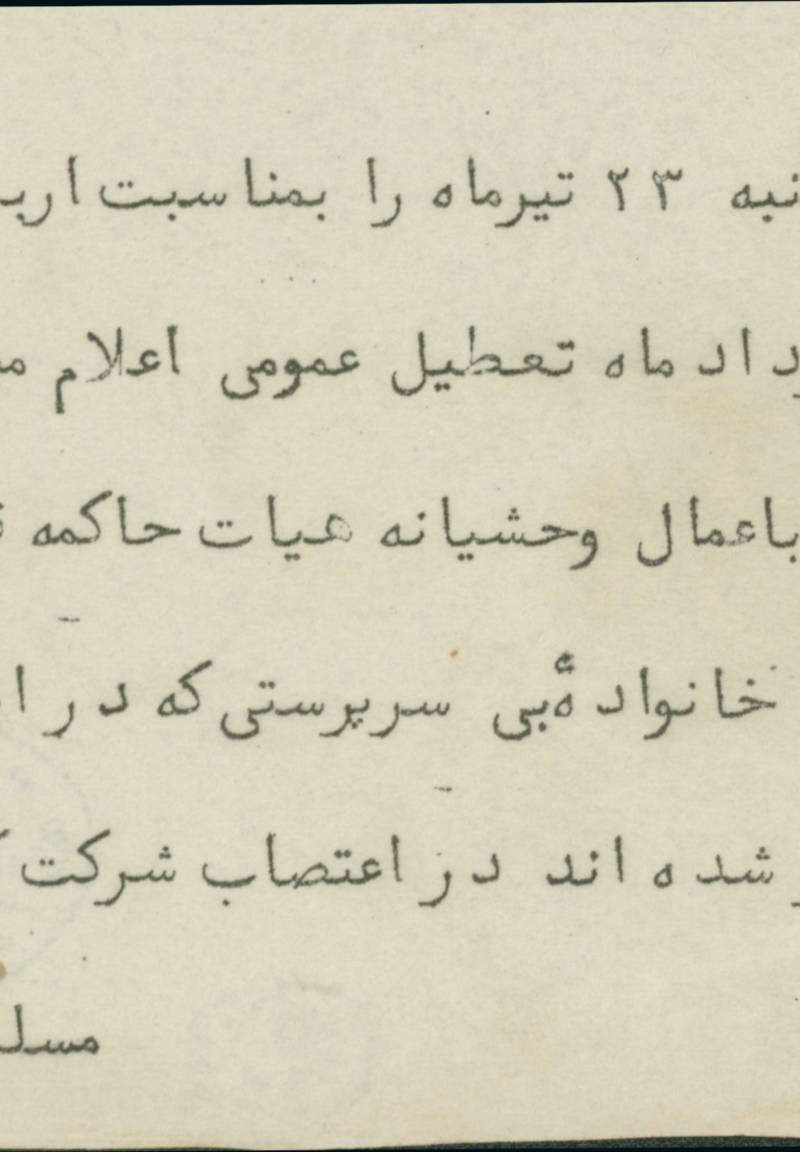 نبه ۲۳ تیرماه را بمناسبت ارب
داد ماه تعطیل عمومی اعلام م
باعمال وحشیانه هیات حاکمه
خانوادهٔ بی سرپرستی که در ا
شده اند در اعتصاب شرکت
مسل